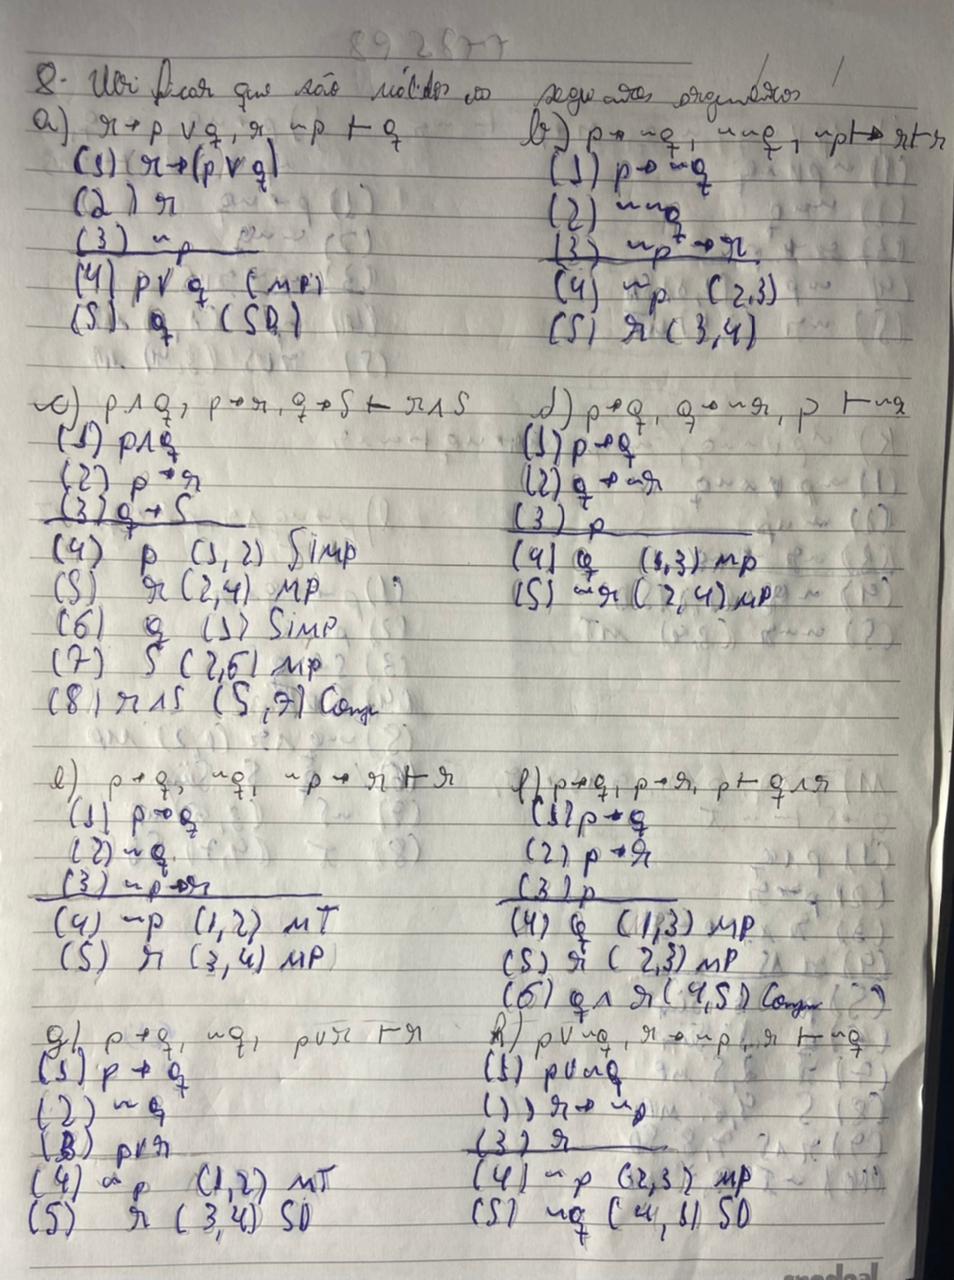 8- Verificar que são válidos os seguintes argumentos
a) r→p v q, r ~p ⊢ q
(1) r→(p v q)
(2) r
(3) ~p
(4) p v q (MP)
(5) q (SD)
b) p→~q, ~~q, ~p→r ⊢ r
(1) p→~q
(2) ~~q
(3) ~p→r
(4) ~p (2,3)
(5) r (3,4)
c) p∧q, p→r, q→S ⊢ r∧S
(1) p∧q
(2) p→r
(3) q→S
(4) p (1,2) Simp
(5) r (2,4) MP
(6) q (1) Simp
(7) S (2,6) MP
(8) r∧S (5,7) Conj
d) p→q, q→~r, p ⊢ ~r
(1) p→q
(2) q→~r
(3) p
(4) q (1,3) MP
(5) ~r (2,4) MP
e) p→q, ~q, ~p→r ⊢ r
(1) p→q
(2) ~q
(3) ~p→r
(4) ~p (1,2) MT
(5) r (3,4) MP
f) p→q, p→r, p ⊢ q∧r
(1) p→q
(2) p→r
(3) p
(4) q (1,3) MP
(5) r (2,3) MP
(6) q∧r (4,5) Conj
g) p→q, ~q, p v r ⊢ r
(1) p→q
(2) ~q
(3) p v r
(4) ~p (1,2) MT
(5) r (3,4) SD
h) p v ~q, r→~p, r ⊢ ~q
(1) p v ~q
(2) r→~p
(3) r
(4) ~p (2,3) MP
(5) ~q (4,1) SD